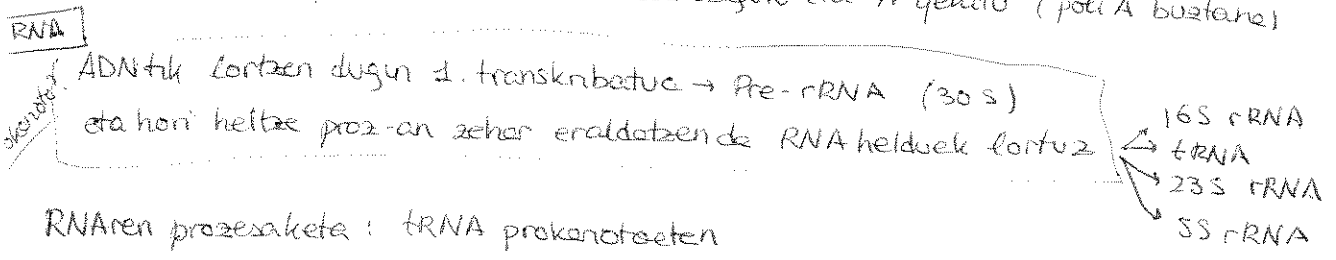 (poli A buztana)
RNA
ADNtik lortzen dugun 1. transkribatua → Pre-rRNA (30S)
eta hori heltze proz-an zehar eraldatzen da RNA helduek lortuz
16S rRNA
tRNA
23S rRNA
5S rRNA
RNAren prozesaketa : tRNA prokariotoetan